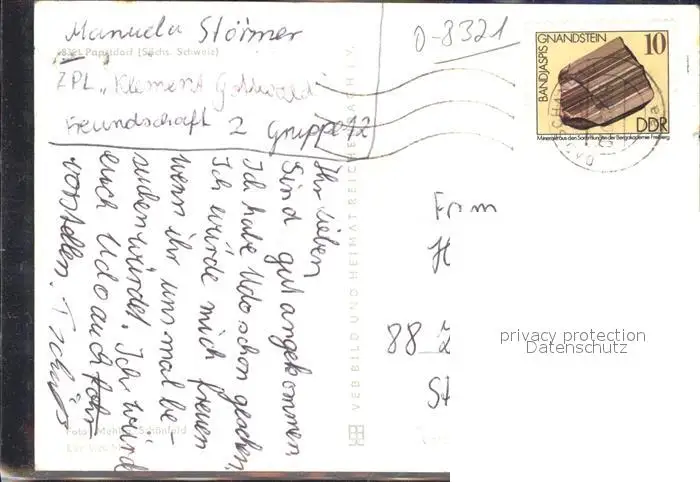 Manuela Störmer
8321 Papstdorf (Sächs. Schweiz)
ZPL „Klement Gottwald“
Freundschaft 2 Gruppe 12
0-8321
BANDJASPIS GNANDSTEIN
10
DDR
Minerale aus den Sammlungen der Bergakademie Freiberg
Ihr Lieben
Sind gut angekommen
Ich habe Udo schon gesehen.
Ich würde mich freuen
wenn ihr uns mal be-
suchen würdet. Ich würd
euch Udo auch
vorstellen. Tschüß
VEB BILD UND HEIMAT REICHENBACH I. V.
88
privacy protection
Datenschutz
Foto: Schönfeld